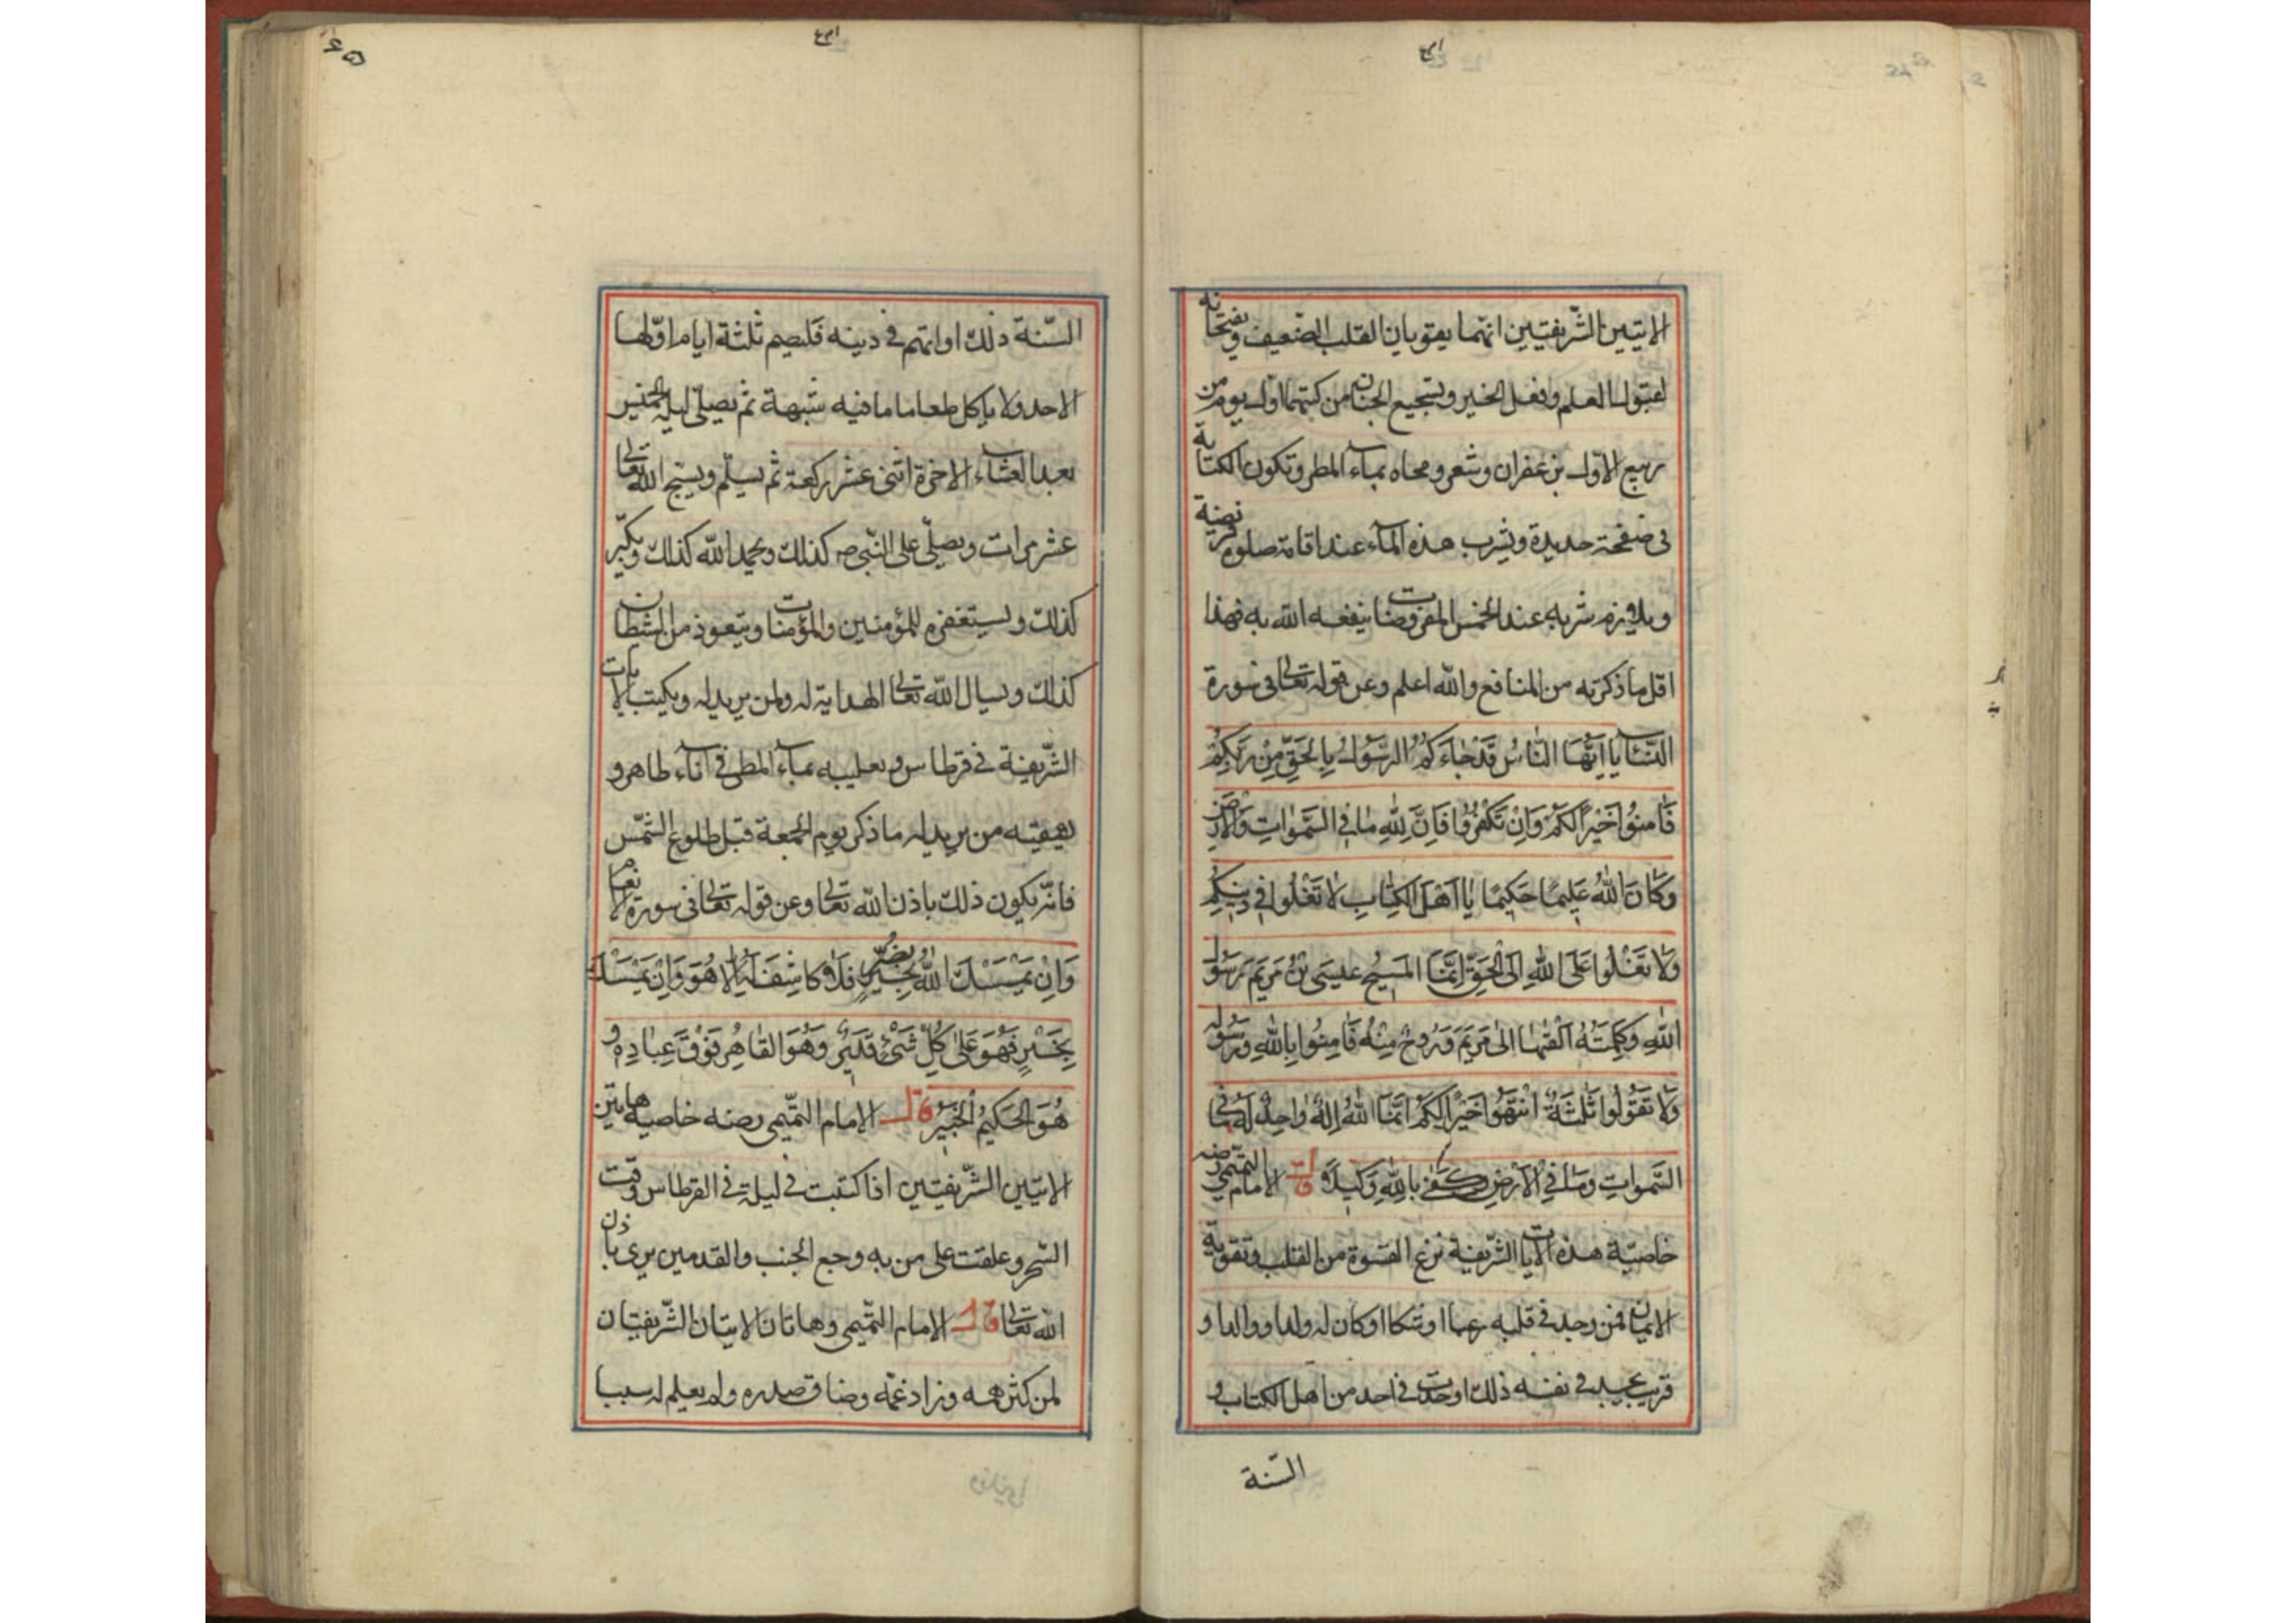 الايتين الشّريفتين انهما يقويان القلب الضّعيف ويفتحانه
لقبول العلم وفعل الخير وتشجيع الجبان من كتبهما اول يوم من
ربيع الاوّل بزعفران وشعر ومحاه بماء المطر وتكون الكتابة
فى صفحة جديدة ويشرب هذه الماء عند اقامة صلوة فريضة
ويلازم شربه عند الخمس المفروضات ينفعه الله به فهذا
اقل ما ذكرته من المنافع والله اعلم وعن قوله تعالى فى سورة
النّساء يَا اَيُّهَا النَّاسُ قَدْ جَاءَكُمُ الرَّسُولُ بِالْحَقِّ مِنْ رَبِّكُمْ
فَآمِنُوا خَيْرًا لَكُمْ وَاِنْ تَكْفُرُوا فَاِنَّ لِلّٰهِ مَا فِى السَّمٰوَاتِ وَالْاَرْضِ
وَكَانَ اللّٰهُ عَلِيمًا حَكِيمًا يَا اَهْلَ الْكِتَابِ لَا تَغْلُوا فِى دِينِكُمْ
وَلَا تَغْلُوا عَلَى اللّٰهِ اِلَى الْحَقِّ اِنَّمَا الْمَسِيحُ عِيسَى بْنُ مَرْيَمَ رَسُولُ
اللّٰهِ وَكَلِمَتُهُ اَلْقٰيهَا اِلٰى مَرْيَمَ وَرُوحٌ مِنْهُ فَآمِنُوا بِاللّٰهِ وَرَسُولِهِ
وَلَا تَقُولُوا ثَلٰثَةٌ اِنْتَهُوا خَيْرًا لَكُمْ اِنَّمَا اللّٰهُ اِلٰهٌ وَاحِدٌ لَهُ مَا فِى
السَّمٰوَاتِ وَمَا فِى الْاَرْضِ وَكَفٰى بِاللّٰهِ وَكِيلًا قال الامام التّميمى رضه
خاصيّة هذه الايات الشّريفة نزع القسوة من القلب وتقوية
الايمان فمن وجد فى قلبه او شكا او كان له ولدا ووالدا و
قريب يجد فى نفسه ذلك او حدث فى احد من اهل الكتاب و
السّنة
السّنة ذلك او اتهم فى دينه فليصم ثلثة ايام اوّلها
الاحد ولا ياكل طعاما ما فيه شبهة ثم يصلّى ليلة الخميس
بعد العشاء الاخرة اثنى عشر ركعة ثم يسلّم ويسبح الله تعالى
عشر مرات ويصلّى على النّبى ص كذلك ويحمد الله كذلك ويكبّر
كذلك ويستغفر للمؤمنين والمؤمنات ويتعوذ من الشيطان
كذلك ويسال الله تعالى الهداية له ولمن يريد له ويكتب الايات
الشّريفة فى قرطاس بماء المطر فى اناء طاهر و
يسقيه من يريد له ما ذكر يوم الجمعة قبل طلوع الشّمس
فانّه يكون ذلك باذن الله تعالى وعن قوله تعالى فى سورة الانعام
وَاِنْ يَمْسَسْكَ اللّٰهُ بِضُرٍّ فَلَا كَاشِفَ لَهُ اِلَّا هُوَ وَاِنْ يَمْسَسْكَ
بِخَيْرٍ فَهُوَ عَلٰى كُلِّ شَىْءٍ قَدِيرٌ وَهُوَ الْقَاهِرُ فَوْقَ عِبَادِهِ وَ
هُوَ الْحَكِيمُ الْخَبِيرُ قال الامام التّميمى رضه خاصية هاتين
الايتين الشّريفتين اذا كتبت فى ليلة فى القرطاس وقت
السّحر وعلقت على من به وجع الجنب والقدمين يرى باذن
الله تعالى قال الامام التّميمى وهاتان الايتان الشّريفتان
لمن كثر همه وزاد غمّه وضاق صدره ولم يعلم له سببا